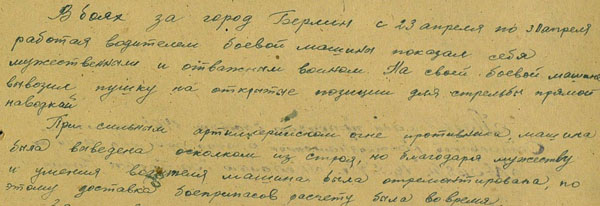 В боях за город Берлин с 23 апреля по 30 апреля
работая водителем боевой машины показал себя
мужественным и отважным воином. На своей боевой машине
вывозил пушку на открытые позиции для стрельбы прямой
наводкой.
При сильным артиллерийском огне противника, машина
была выведена осколком из строя, но благодаря мужеству
и умения водителя машина была отремонтирована, по
этому доставка боеприпасов расчету была во время.